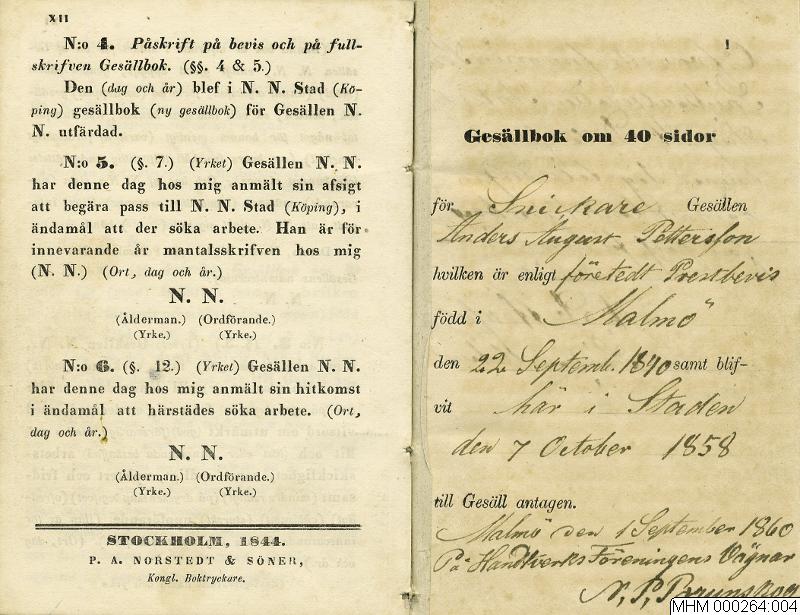 XII
N:o 4. Påskrift på bevis och på full-
skrifven Gesällbok. (§§. 4 & 5.)
Den (dag och år) blef i N. N. Stad (Kö-
ping) gesällbok (ny gesällbok) för Gesällen N.
N. utfärdad.
N:o 5. (§. 7.) (Yrket) Gesällen N. N.
har denne dag hos mig anmält sin afsigt
att begära pass till N. N. Stad (Köping), i
ändamål att der söka arbete. Han är för
innevarande år mantalsskrifven hos mig
(N. N.) (Ort, dag och år.)
N. N.
(Ålderman.) (Ordförande.)
(Yrke.) (Yrke.)
N:o 6. (§. 12.) (Yrket) Gesällen N. N.
har denne dag hos mig anmält sin hitkomst
i ändamål att härstädes söka arbete. (Ort,
dag och år.)
N. N.
(Ålderman.) (Ordförande.)
(Yrke.) (Yrke.)
STOCKHOLM, 1844.
P. A. NORSTEDT & SÖNER,
Kongl. Boktryckare.
1
Gesällbok om 40 sidor
för Snickare Gesällen
Anders August Pettersson
hvilken är enligt företedt Prestbevis
född i Malmö
den 22 Septemb. 1840 samt blif-
vit här i Staden
den 7 October 1858
till Gesäll antagen.
Malmö den 1 September 1860
På Handtverks Föreningens Vägnar
N. P. Brunskog
MHM 000264:004